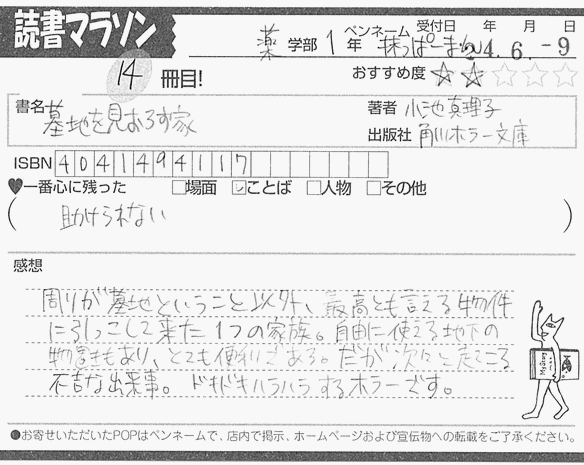 読書マラソン
14 冊目!
薬 学部 1 年 ペンネーム 抹っぱーまん 受付日 年 月 日
24.6.-9
おすすめ度 ★★☆☆☆
書名 墓地を見おろす家
著者 小池真理子
出版社 角川ホラー文庫
ISBN 4041494117
♥一番心に残った □場面 ☑ことば □人物 □その他
( 助けられない )
感想
周りが墓地ということ以外、最高とも言える物件
に引っこして来た1つの家族。自由に使える地下の
物置もあり、とても便利である。だが次々と起こる
不吉な出来事。ドキドキハラハラするホラーです。
●お寄せいただいたPOPはペンネームで、店内で掲示、ホームページおよび宣伝物への転載をご了承ください。